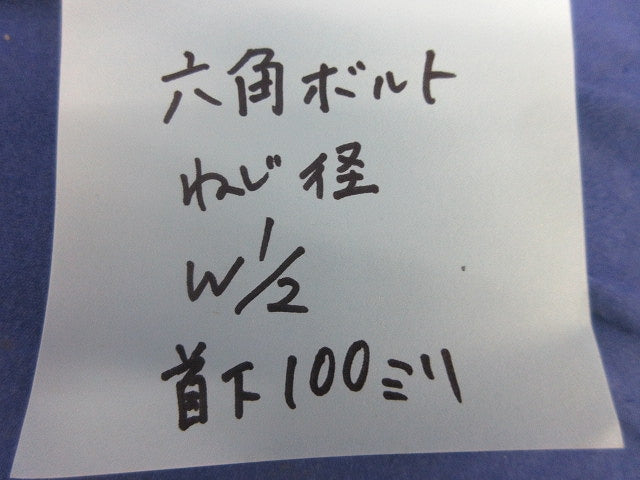 六角ボルト
ねじ径
W1/2
首下100ミリ